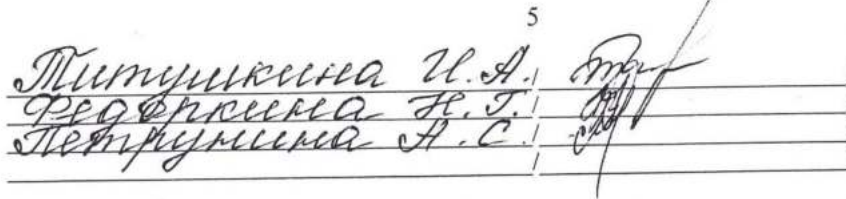 5
Титушкина И.А. /
Федеркина Н.Г. /
Петрунина А.С. /
/